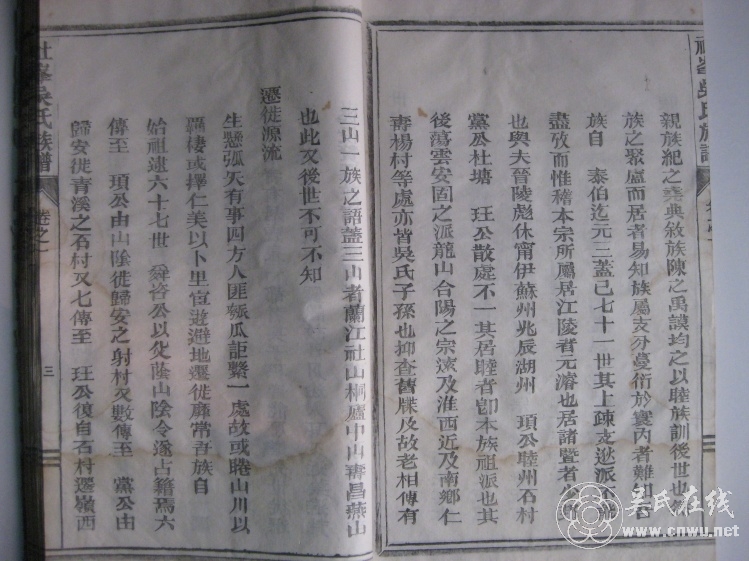 社峯吳氏族譜
親族紀之堯典敘族陳之禹謨均之以睦族訓後世也
族之聚廬而居者易知族屬支分蔓衍於寰內者難知
族自 泰伯迄元三蓋已七十一世其上疎支逖派
盡攷而惟稽本宗所屬居江陵者元濬也居諸暨者
也與夫晉陵彪休甯伊蘇州兆辰湖州 頊公睦州石村
黨公杜塘 玨公散處不一其居睦者卽本族祖派也其
後蕩雲安固之派龍山合陽之宗遠及淮西近及南鄉仁
壽楊村等處亦皆吳氏子孫也抑查舊牒及故老相傳有
三山一族之語蓋三山者蘭江社山桐廬中山壽昌燕山
也此又後世不可不知
遷徙源流
生懸弧矢有事四方人匪瓠瓜詎繫一處故或睠山川以
羇棲或擇仁美以卜里宦遊避地遷徙靡常吾族自
始祖逮六十七世 舜咨公以父蔭山陰令遂占籍焉六
傳至 頊公由山陰徙歸安之射村又數傳至 黨公由
歸安徙青溪之石村又七傳至 玨公復自石村遷嶺西
社峯吳氏族譜
卷之一
三
吴氏在线
www.cnwu.net